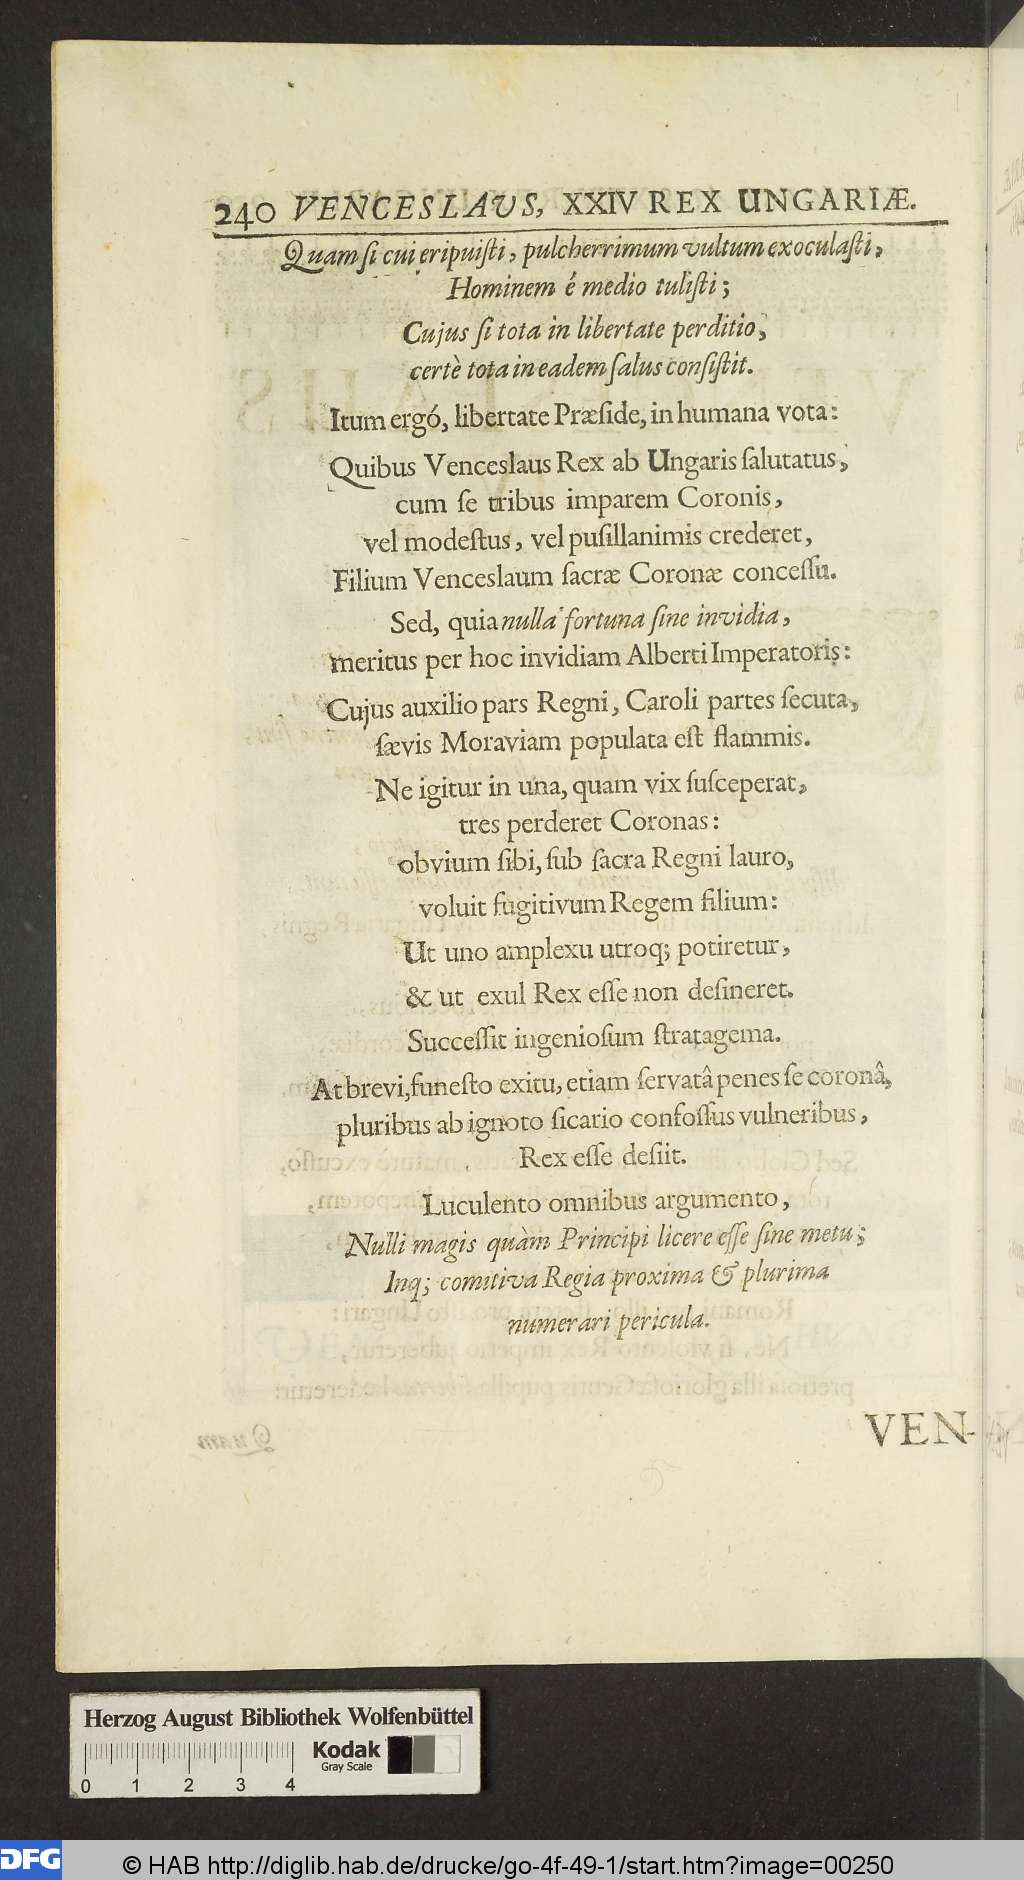 240 VENCESLAVS, XXIV REX UNGARIÆ.
Quam si cui eripuiſti, pulcherrimum vultum exoculaſti,
Hominem é medio tuliſti;
Cujus ſi tota in libertate perditio,
certè tota in eadem ſalus conſiſtit.
Itum ergó, libertate Præſide, in humana vota:
Quibus Venceslaus Rex ab Ungaris ſalutatus,
cum ſe tribus imparem Coronis,
vel modeſtus, vel puſillanimis crederet,
Filium Venceslaum ſacræ Coronæ conceſſu.
Sed, quia nulla fortuna ſine invidia,
meritus per hoc invidiam Alberti Imperatoris:
Cujus auxilio pars Regni, Caroli partes ſecuta,
ſævis Moraviam populata eſt flammis.
Ne igitur in una, quam vix ſuſceperat,
tres perderet Coronas:
obvium ſibi, ſub ſacra Regni lauro,
voluit fugitivum Regem filium:
Ut uno amplexu utroq; potiretur,
& ut exul Rex eſſe non deſineret.
Succeſſit ingenioſum ſtratagema.
At brevi, funeſto exitu, etiam ſervatâ penes ſe coronâ,
pluribus ab ignoto ſicario confoſſus vulneribus,
Rex eſſe deſiit.
Luculento omnibus argumento,
Nulli magis quàm Principi licere eſſe ſine metu;
Inq; comitiva Regia proxima & plurima
numerari pericula.
VEN-
Herzog August Bibliothek Wolfenbüttel
Kodak
Gray Scale
0 1 2 3 4
DFG
© HAB http://diglib.hab.de/drucke/go-4f-49-1/start.htm?image=00250